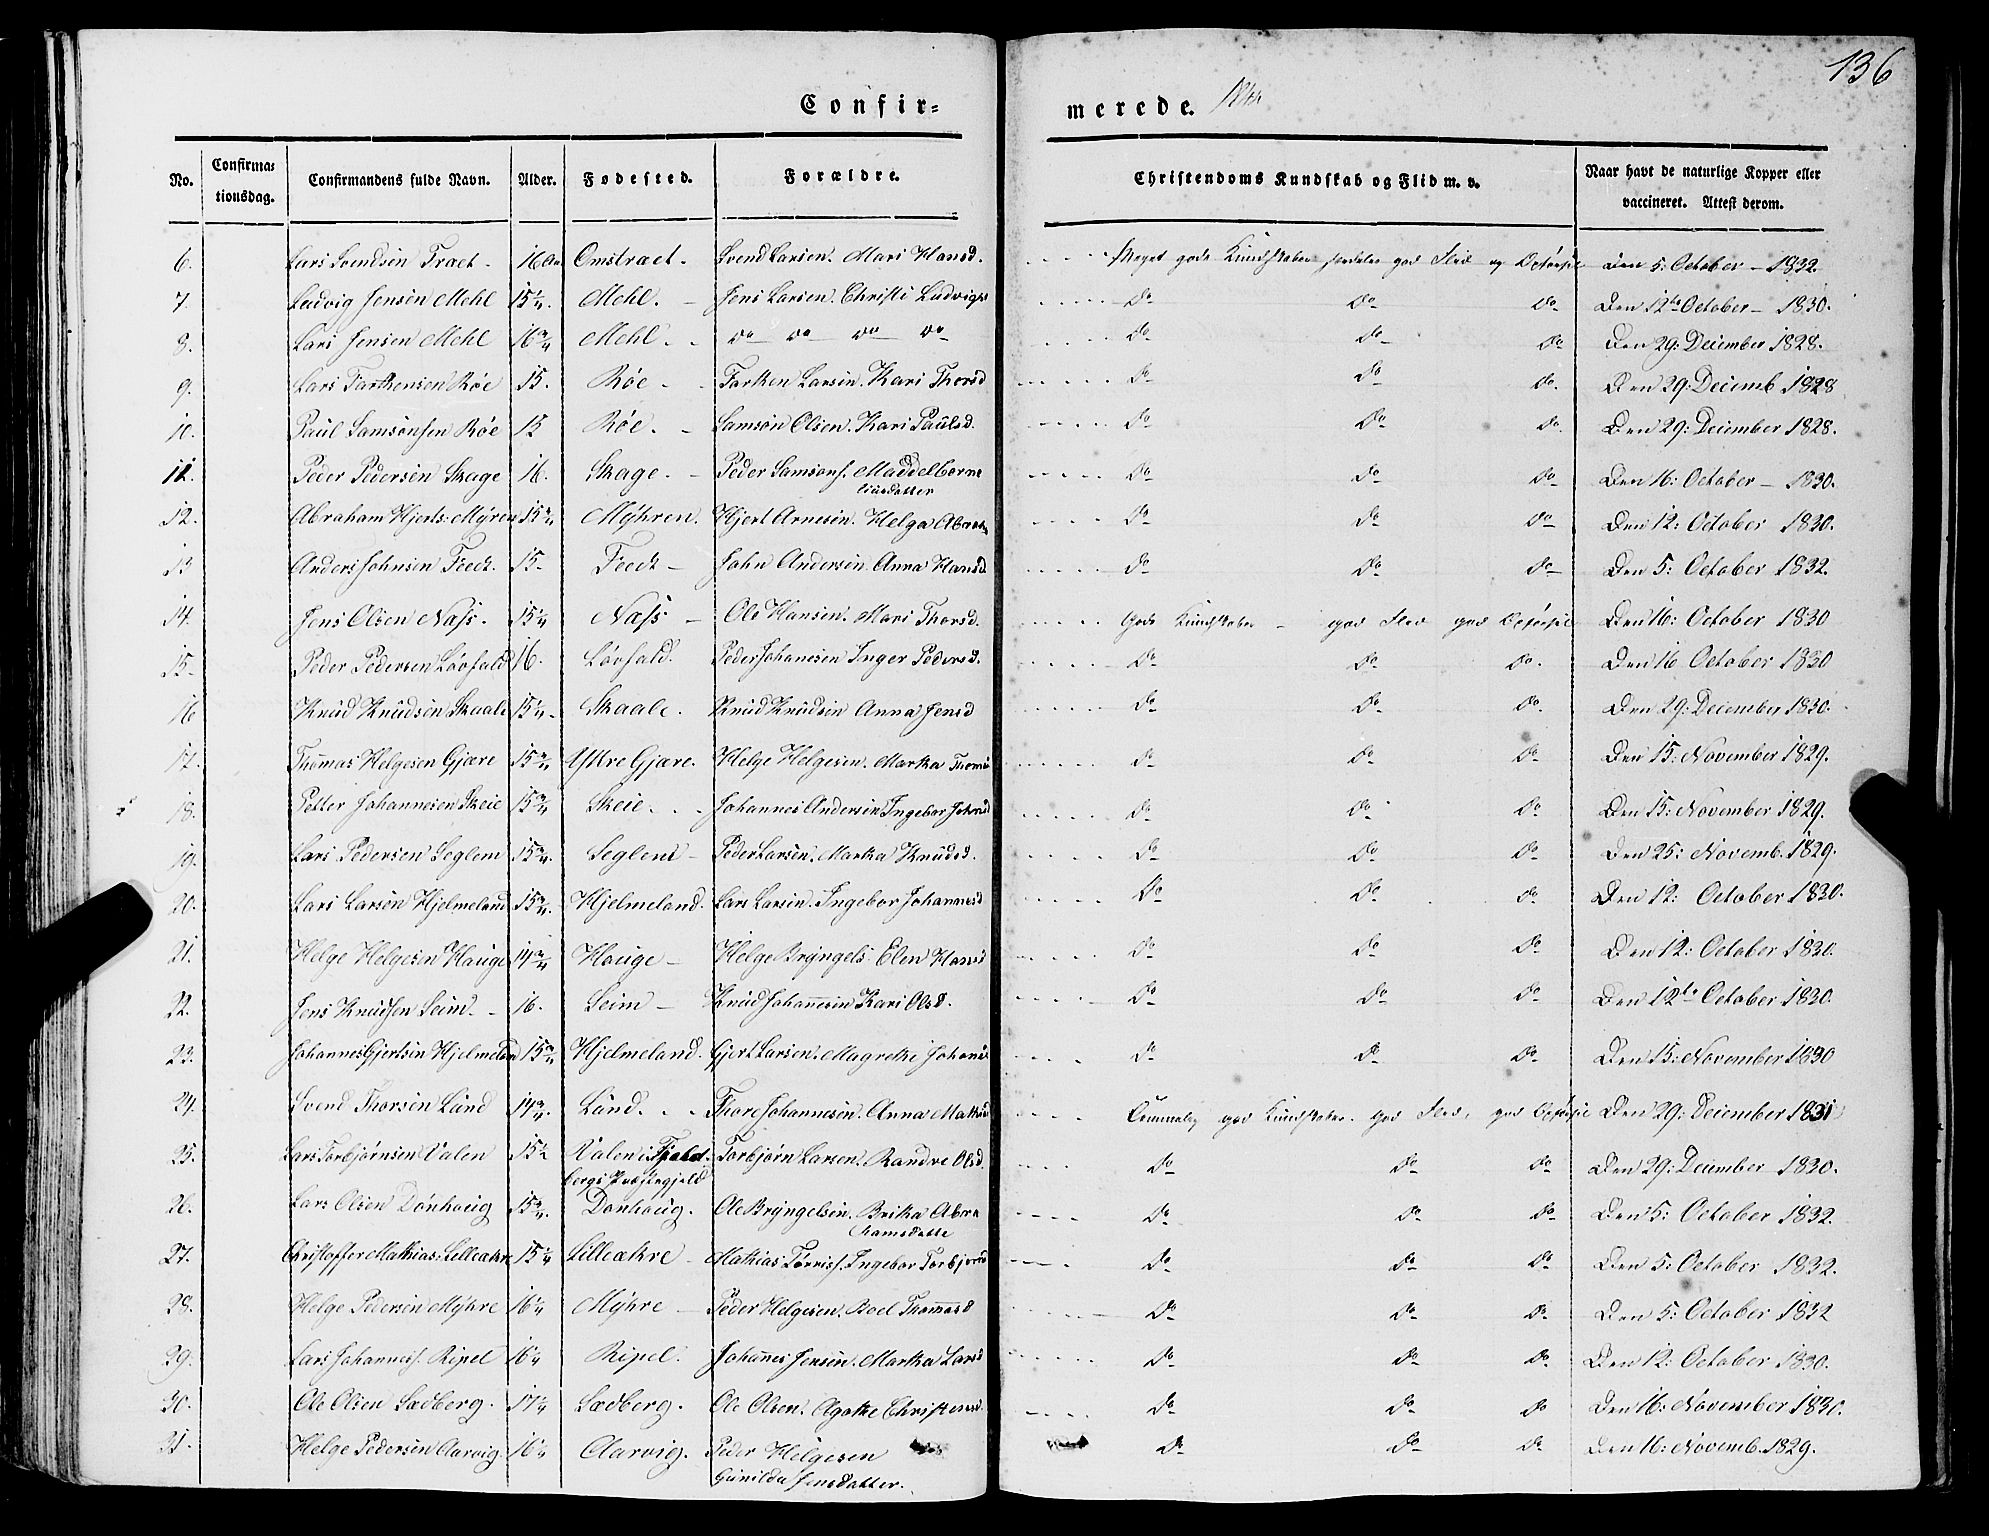 136
Confir=
merede.
No.
Confirma=
tionsdag.
Confirmandens fulde Navn.
Alder.
Fødested.
Forældre.
Christendoms Kundskab og Flid m. v.
Naar havt de naturlige Kopper eller
vaccineret. Attest derom.
6. Lars Svendsen Traet. 16 Aar Omstraet. Svend Larsen. Mari Hansd. Meget gode Kundskaber særdeles god Flid og Den 5: October 1832
7. Ludvig Jensen Mehl 15 1/4. Mehl. Jens Larsen. Christi Ludvigs do do do Den 12te October 1830.
8. Lars Jensen Mehl 16 3/4 Mehl. do do do do do do do Den 29: December 1828.
9. Lars Tarkensen Røe 15. Røe Tarken Larsen. Kari Thorsd do do do. Den 29: Decemb 1828
10. Paul Samsonsen Røe 15 Røe. Samson Olsen. Kari Paulsd. do do do. Den 29: December 1828.
11. Peder Pedersen Skage 16. Skage. Peder Samsons. do do do Den 16: October 1830.
12. Abraham Hjerts: Myren 15 3/4 Myhren. Hjert Arnesen. Helga do do do Den 12: October 1830.
13 Anders Johnsen Teedt. 15 Teedt John Andersen Anna Hansd do do do Den 5: October 1832.
14. Jens Olsen Næss. 15 1/4 Næss Ole Hansen. Mari Thorsd. gode Kundskaber god Flid god Den 16: October 1830
15. Peder Pedersen Løvfald 16. Løvfald. Peder Johanesen Inger Pedersd. do do do. Den 16 October 1830
16 Knud Knudsen Skaale 15 1/4. Skaale. Knud Knudsen Anna Jensd do do do. Den 29: December 1830.
17. Thomas Helgesen Gjære 15 3/4 Ystre Gjære. Helge Helgesen. Martha do do do Den 15: November 1829.
18. Petter Johannesen Skeie 15 3/4 Skeie. Johannes Andersen Ingebor do do do Den 15: November 1829.
19. Lars Pedersen Seglem 15 3/4. Seglem Peder Larsen. Martha Knudsd. do do do Den 25: Novemb. 1829.
20. Lars Larsen Hjelmeland 15 3/4. Hjelmeland. Lars Larsen. Ingebor Johannesd do do do Den 12: October 1830.
21. Helge Helgesen Hauge 14 3/4 Hauge Helge Bryngels. Elen Hansd do do do Den 12: October 1830.
22. Jens Knudsen Seim. 16. Seim Knud Johannesen Kari Olsd. do do do Den 12te October 1830.
23. Johannes Gjertsen Hjelmeland 15 3/4 Hjelmeland. Gjert Larsen. Magrethe do do do Den 15: November 1830
24. Svend Thorsen Lund 14 3/4. Lund. Thore Johannesen. Anna god Kundskaber. god Flid, god Den 29: December 1831
25. Lars Torbjørnsen Valen 15 1/2 Valen i Fjeld- Torbjørn Larsen. Randve Olsd. do do do Den 29: December 1830.
bergs Præstegjeld
26. Lars Olsen Dønhoug 15 3/4. Dønhoug. Ole Bryngelsen. Brita Abra do do do Den 5: October 1832.
hamsdatte
27. Christoffer Mathias: Lilleakre 15 1/4 Lilleakre Mathias Tørriss. Ingebor Torbjørnsd do do do Den 5: October 1832.
28. Helge Pedersen Myhre 16 1/4 Myhre Peder Helgesen. Roel Thomasd do do do Den 5: October 1832
29. Lars Johanness. Ripel 16 1/4 Ripel. Johannes Jensen. Martha Larsd do do do Den 12: October 1830.
30. Ole Olsen Sædberg. 17 1/4 Sædberg. Ole Olsen. Agathe Christensd. do do do Den 16: November 1830.
31. Helge Pedersen Aarvig. 16 1/4 Aarvig. Peder Helgesen do do do Den 16: Novemb. 1829.
Gunilda Jensdatter.